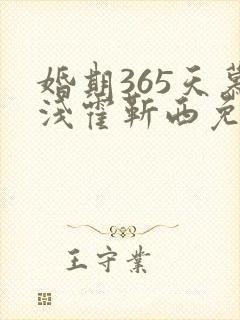 婚期365天慕
浅霍靳西免
王守業